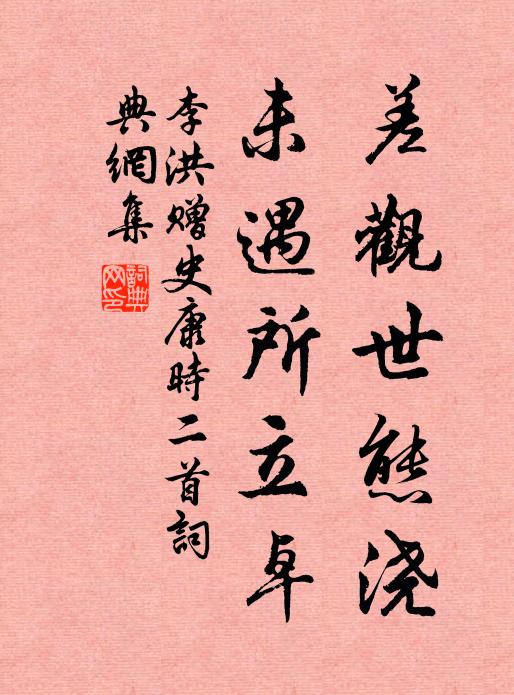 差觀世態浇
未遇所立卓
李洪赠史康時二首詞
典網集
詞典网印